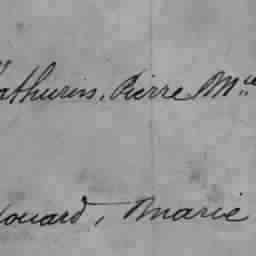 athurin, Pierre M.ie
douard, Marie